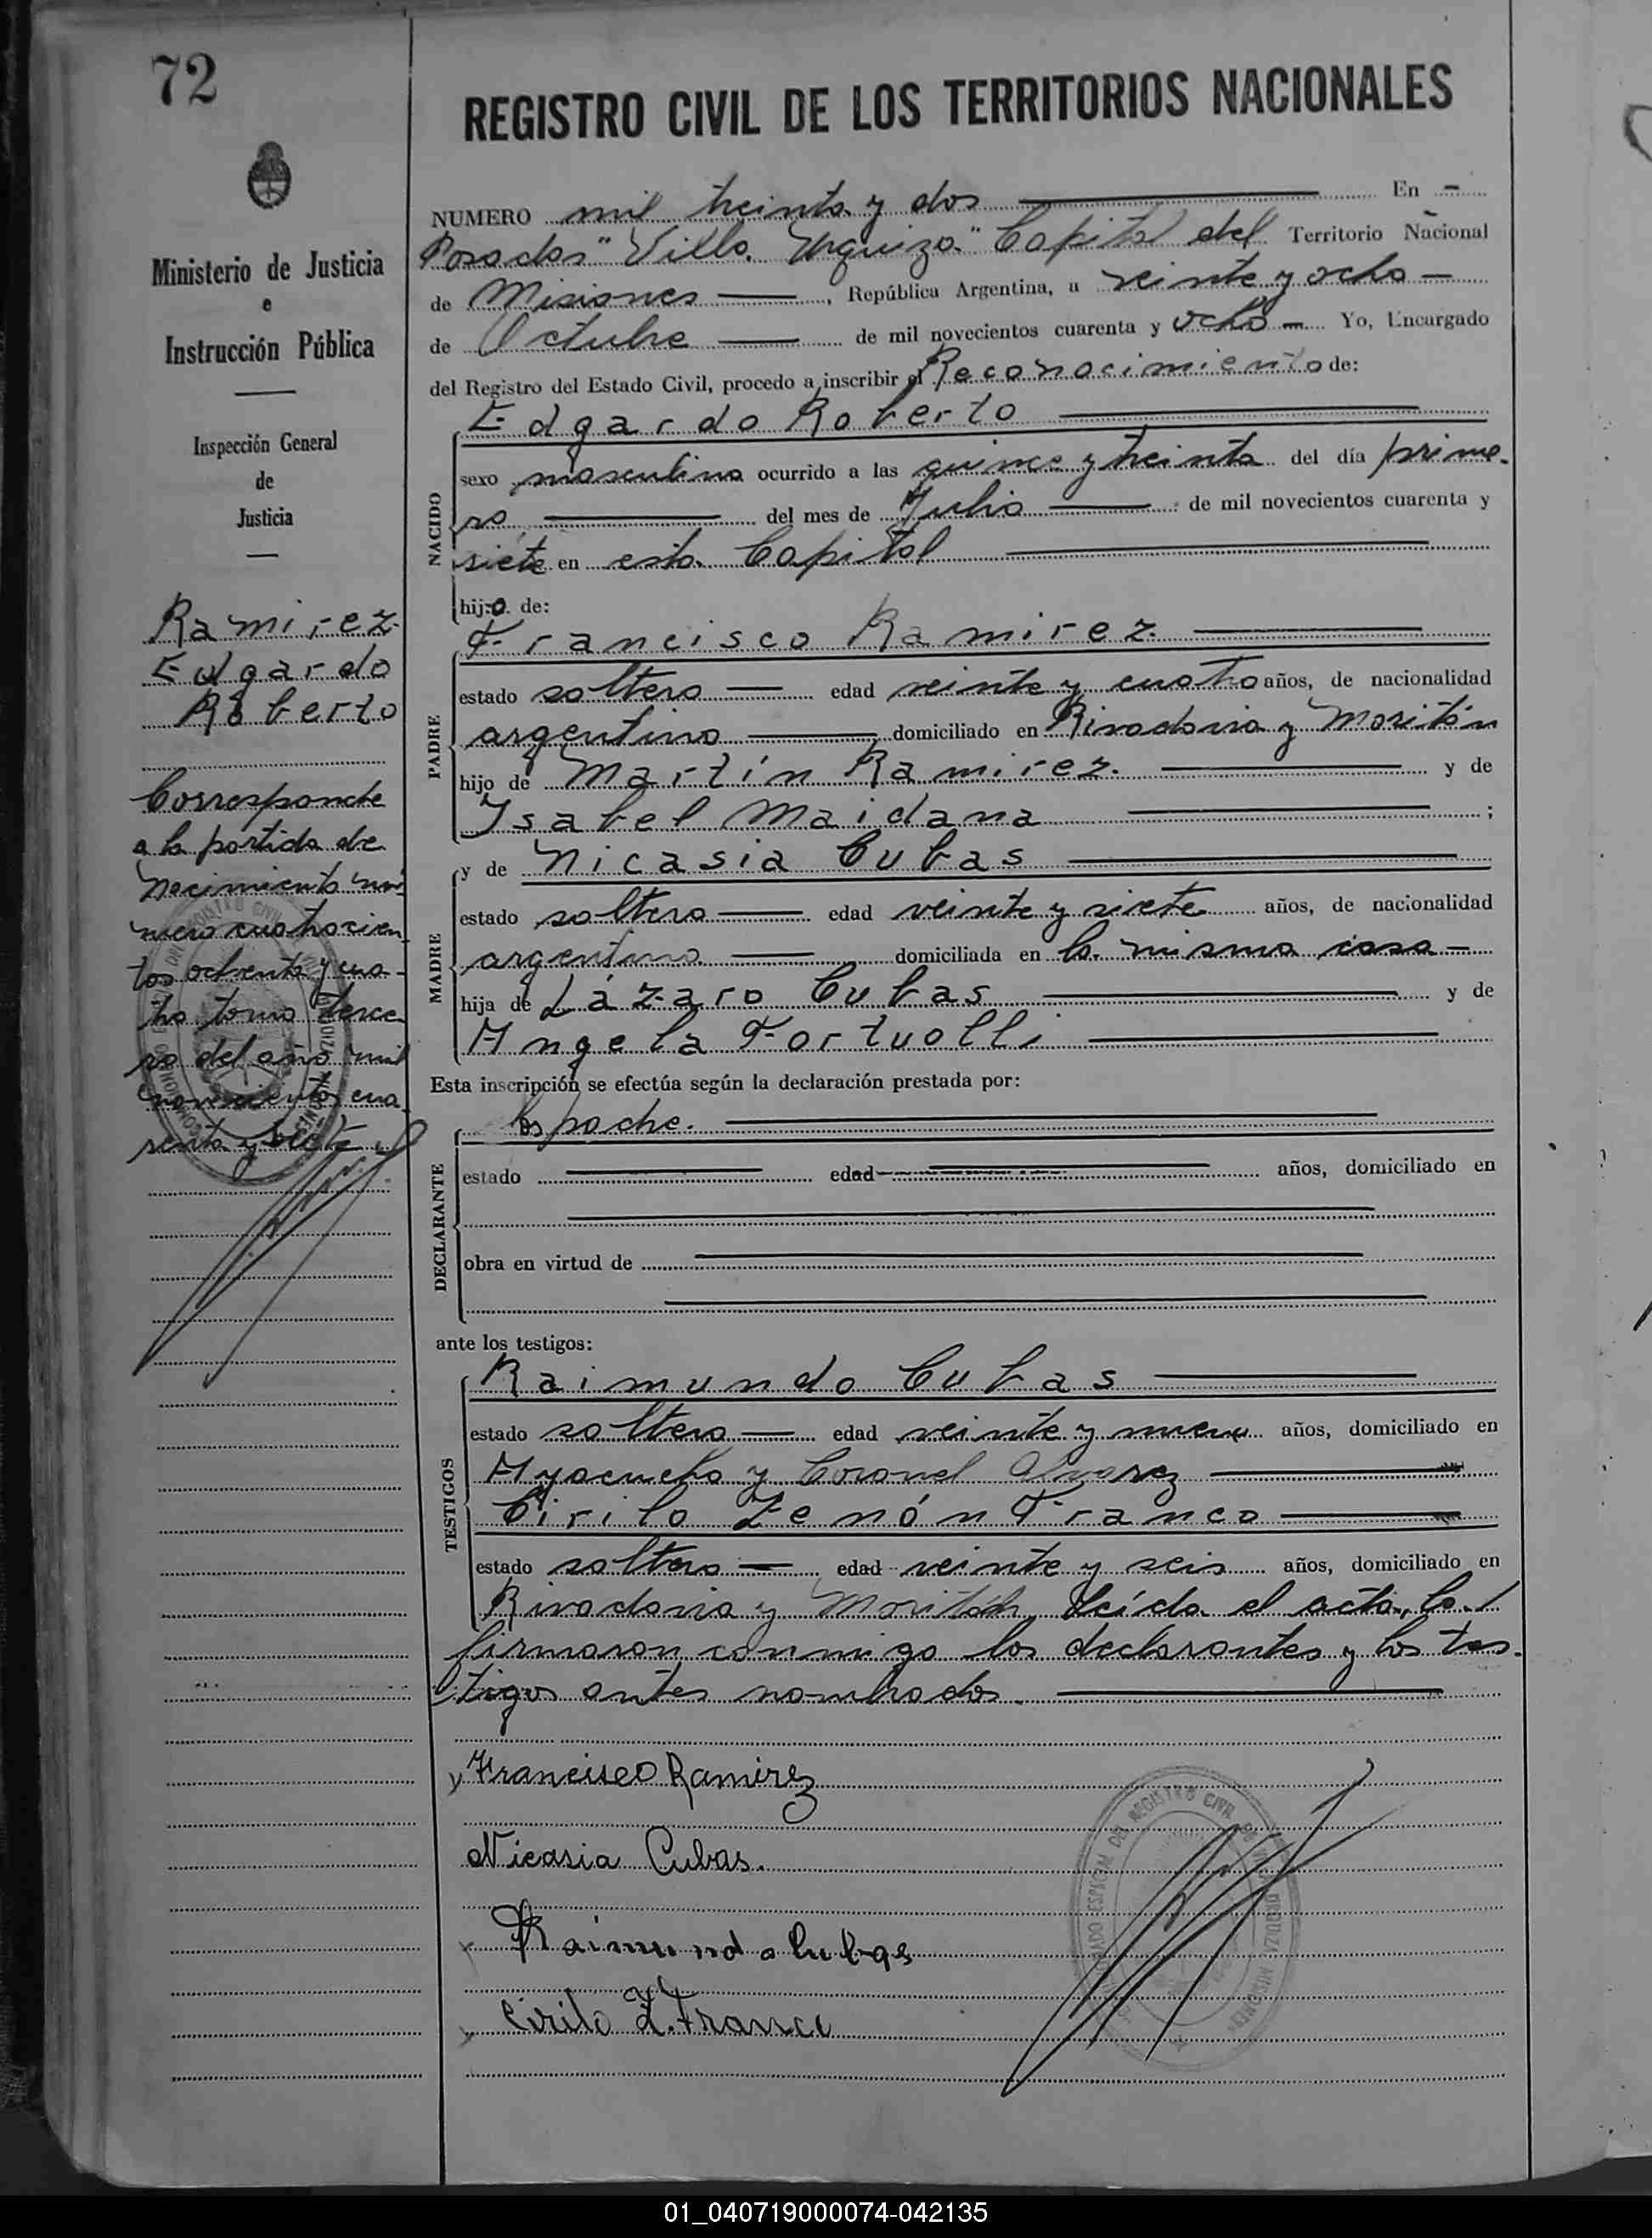 72
REGISTRO CIVIL DE LOS TERRITORIOS NACIONALES
Ministerio de Justicia
e
Instrucción Pública
Inspección General
de
Justicia
Ramirez
Edgardo
Roberto
Corresponde
a la partida de
Nacimiento nú
mero cuatrocien
tos ochenta y cua-
tro tomo terce
ro del año mil
novecientos cua
renta y siete
NUMERO mil treinta y dos En
Posadas "Villa Urquiza" Capital del Territorio Nacional
de Misiones, República Argentina, a veinte y ocho
de Octubre de mil novecientos cuarenta y ocho Yo, Encargado
del Registro del Estado Civil, procedo a inscribir el Reconocimiento de:
Edgardo Roberto
NACIDO
sexo masculino ocurrido a las quince y treinta del día prime-
ro del mes de Julio de mil novecientos cuarenta y
siete en esta Capital
hijo de:
Francisco Ramirez
PADRE
estado soltero edad veinte y cuatro años, de nacionalidad
argentino domiciliado en Rivadavia y Moritán
hijo de Martín Ramirez y de
Isabel Maidana ;
y de Nicasia Cubas
MADRE
estado soltera edad veinte y siete años, de nacionalidad
argentina domiciliada en la misma casa
hija de Lázaro Cubas y de
Angela Fortuolli
Esta inscripción se efectúa según la declaración prestada por:
Los padre.
DECLARANTE
estado edad años, domiciliado en
obra en virtud de
ante los testigos:
Raimundo Cubas
TESTIGOS
estado soltero edad veinte y nueve años, domiciliado en
Ayacucho y Coronel Alvarez
Cirilo Zenón Franco
estado soltero edad veinte y seis años, domiciliado en
Rivadavia y Moritán, Leída el acta, la
firmaron conmigo los declarantes y los tes-
tigos antes nombrados.
Francisco Ramirez
Nicasia Cubas.
Raimundo Cubas
Cirilo Z. Franco
01_040719000074-042135